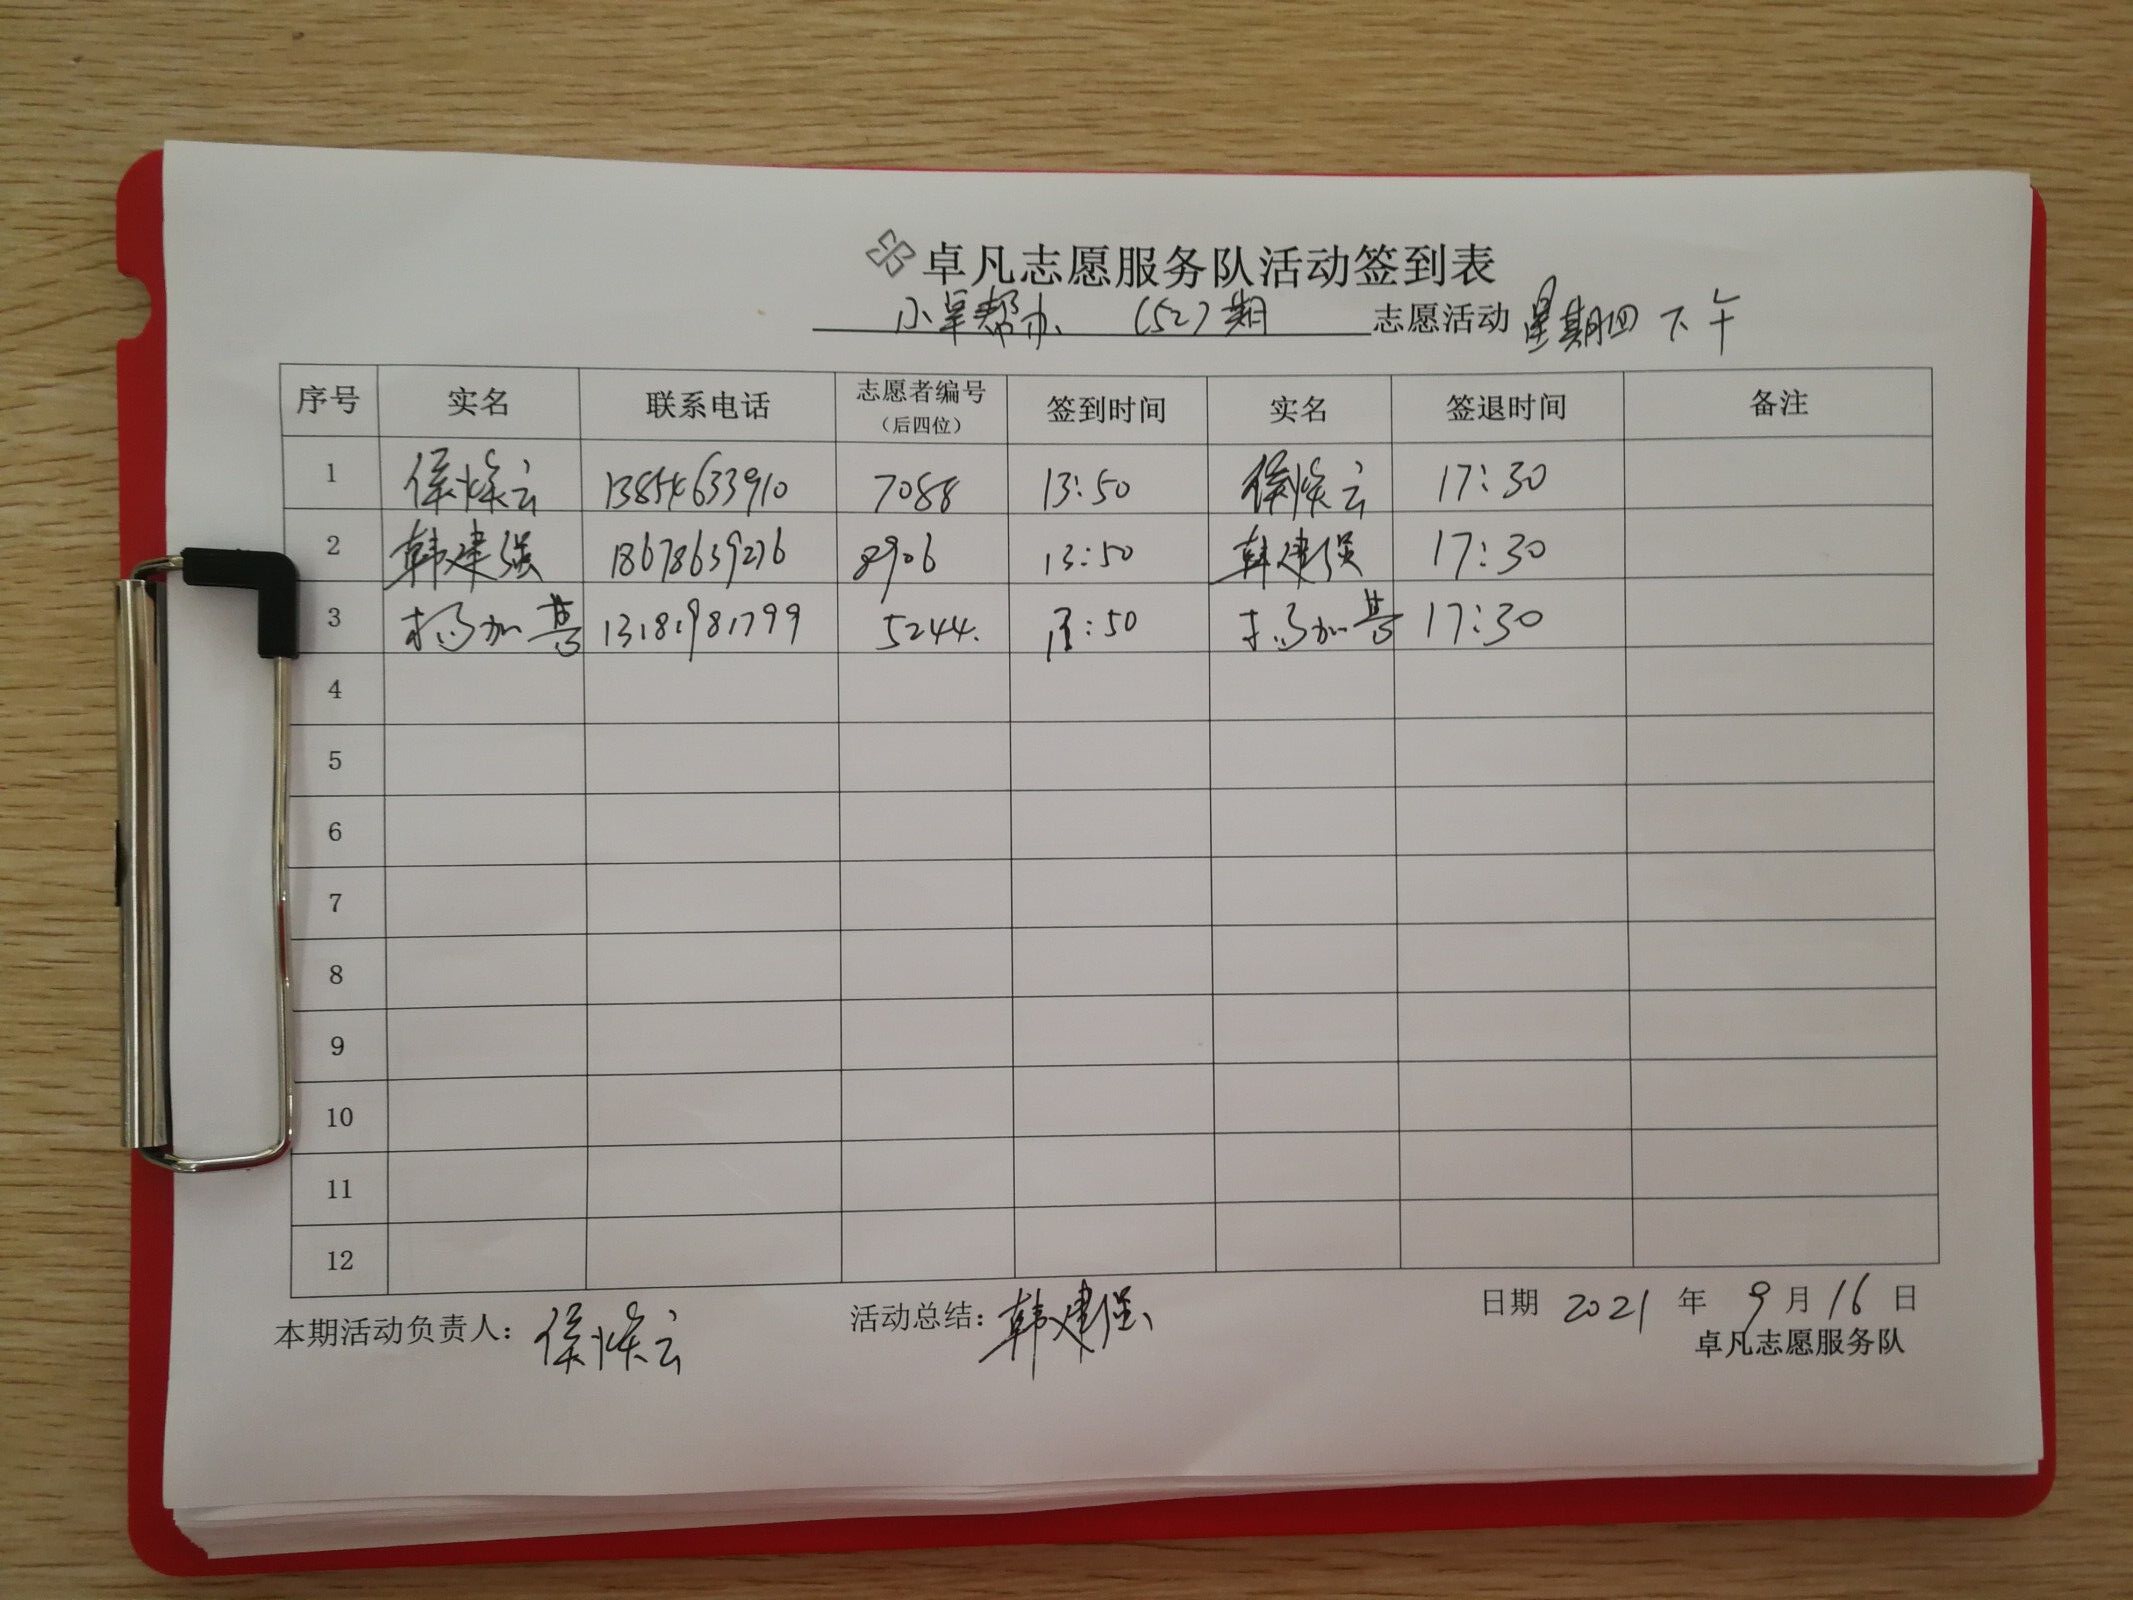 卓凡志愿服务队活动签到表
小卓帮办 (52)期 志愿活动 星期四 下午
序号 实名 联系电话 志愿者编号（后四位） 签到时间 实名 签退时间 备注
1 侯焕云 13854633910 7088 13:50 侯焕云 17:30
2 韩建强 18678639276 8906 13:50 韩建强 17:30
3 杨加普 13181981799 5244. 13:50 杨加普 17:30
4
5
6
7
8
9
10
11
12
本期活动负责人：侯焕云 活动总结：韩建强 日期 2021 年 9 月 16 日
卓凡志愿服务队